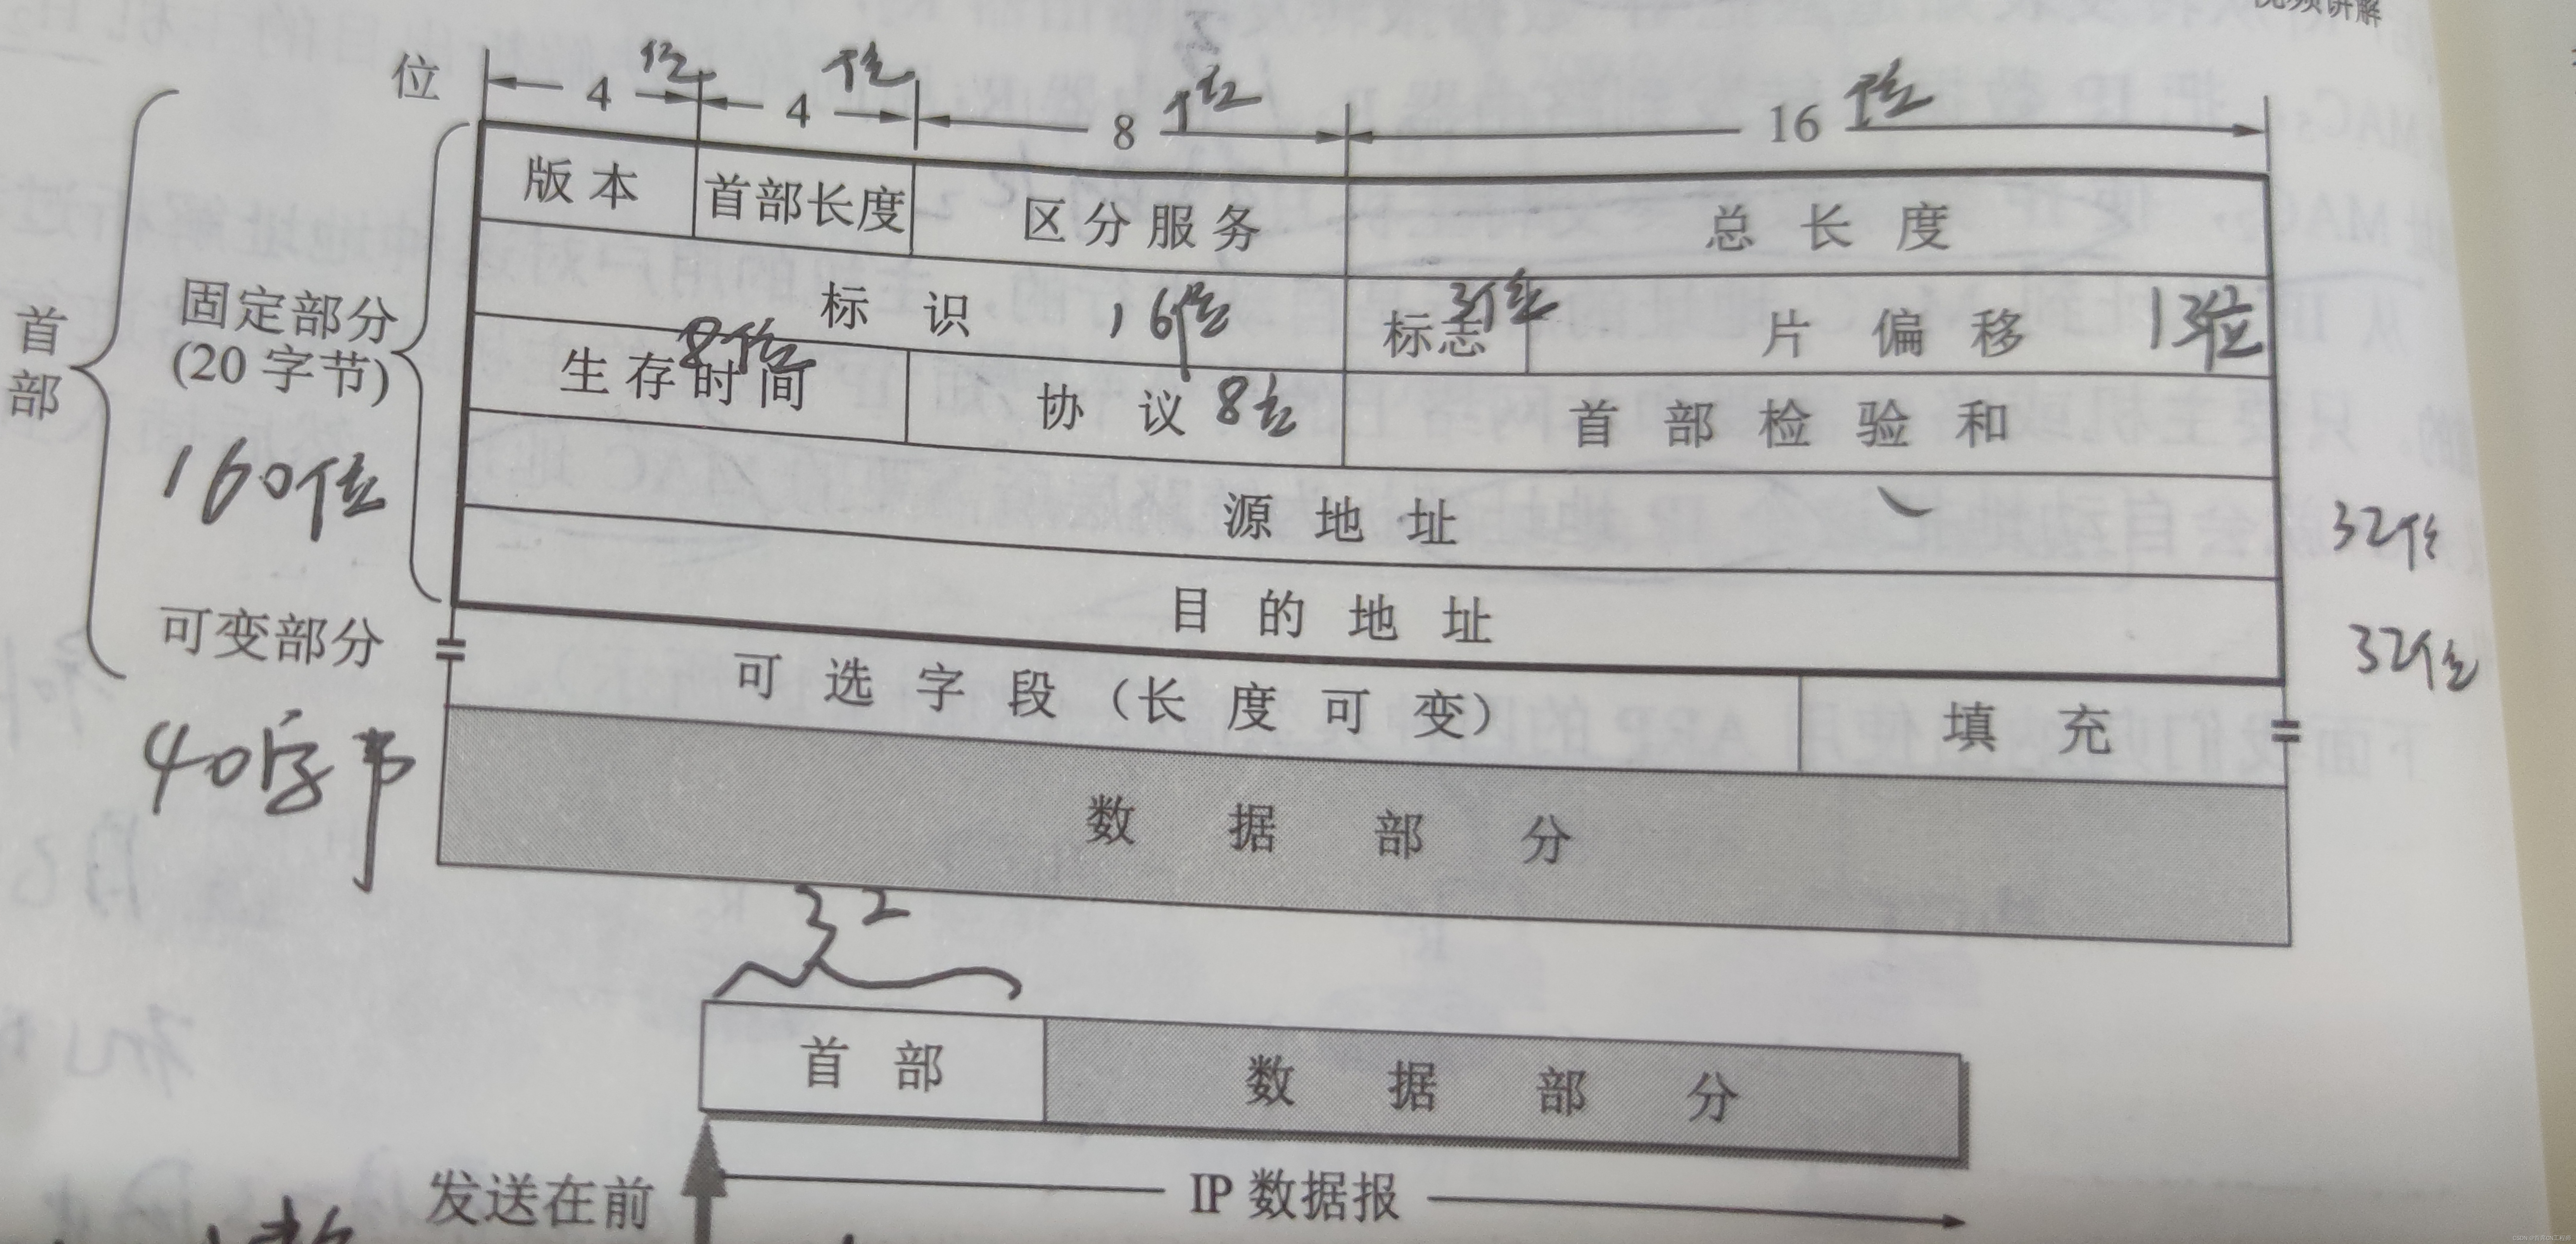 视频讲解
位 4位 4位 8位 16位
版本 首部长度 区分服务 总长度
标识 16位 标志 3位 片偏移 13位
生存时间 8位 协议 8位 首部检验和
源地址 32位
目的地址 32位
可选字段（长度可变） 填充
数据部分
首部
固定部分
(20字节)
160位
可变部分
40字节
32
首部 数据部分
发送在前 IP数据报